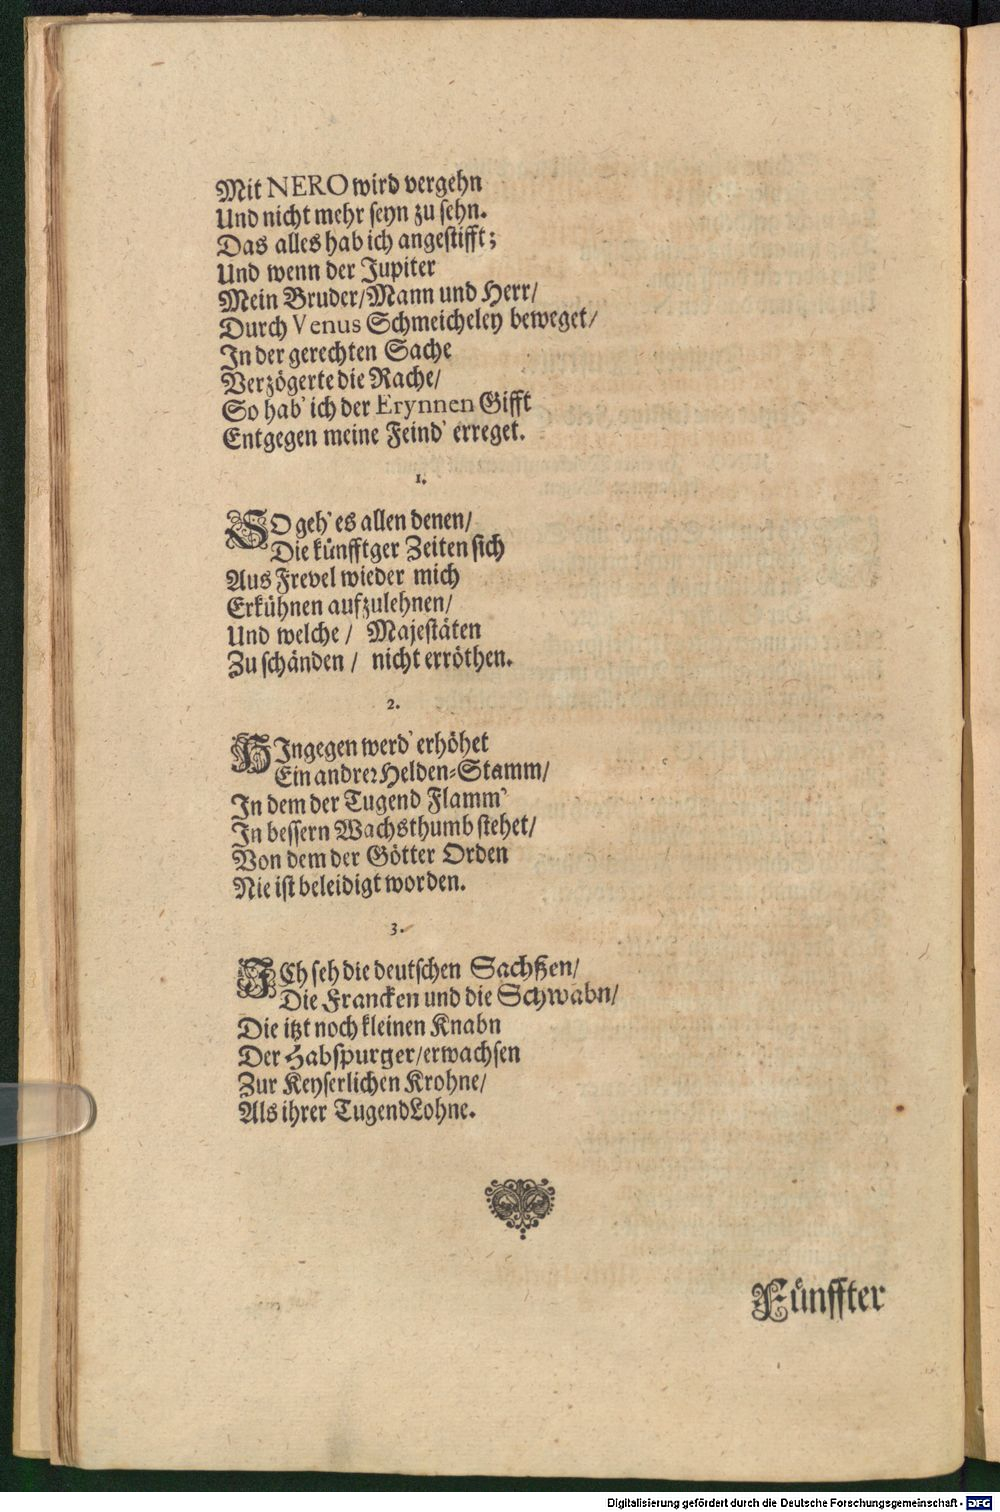 Mit NERO wird vergehn
Und nicht mehr seyn zu sehn.
Das alles hab ich angestifft;
Und wenn der Jupiter
Mein Bruder/Mann und Herr/
Durch Venus Schmeicheley beweget/
In der gerechten Sache
Verzögerte die Rache/
So hab' ich der Erynnen Gifft
Entgegen meine Feind' erreget.
1.
SO geh' es allen denen/
Die künfftger Zeiten sich
Aus Frevel wieder mich
Erkühnen aufzulehnen/
Und welche / Majestäten
Zu schänden / nicht erröthen.
2.
HIngegen werd' erhöhet
Ein andrer Helden-Stamm/
In dem der Tugend Flamm'
In bessern Wachsthumb stehet/
Von dem der Götter Orden
Nie ist beleidigt worden.
3.
ICh seh die deutschen Sachßen/
Die Francken und die Schwabn/
Die itzt noch kleinen Knabn
Der Habspurger/erwachsen
Zur Keyserlichen Krohne/
Als ihrer Tugend Lohne.
Fünffter
Digitalisierung gefördert durch die Deutsche Forschungsgemeinschaft - DFG